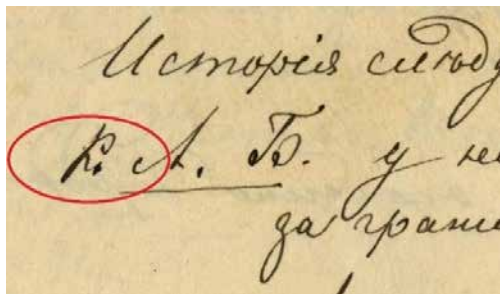 Исторія слѣду
К. А. Б. у не
за грани